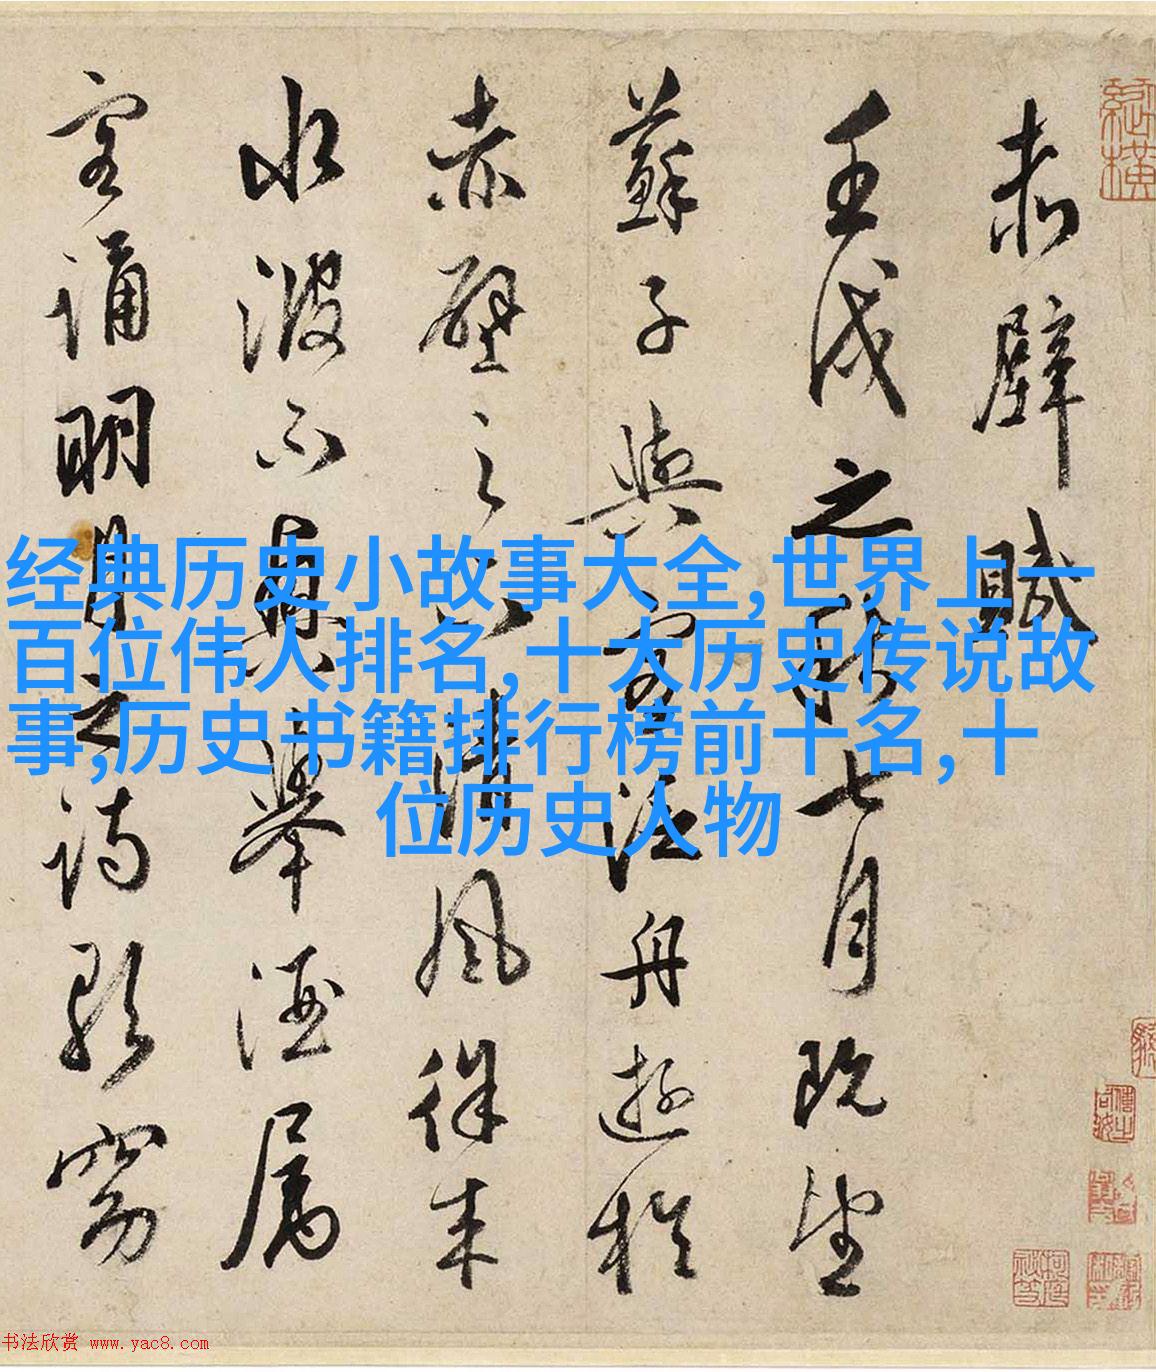 赤壁賦
壬戌之秋七月既望
蘇子與客泛舟遊於
赤壁之下清風徐来
水波不興舉酒属
客誦明月之詩歌窈
经典历史小故事大全,世界上一
百位伟人排名,十大历史传说故
事,历史书籍排行榜前十名,十
位历史人物
书法欣赏 www.yac8.com